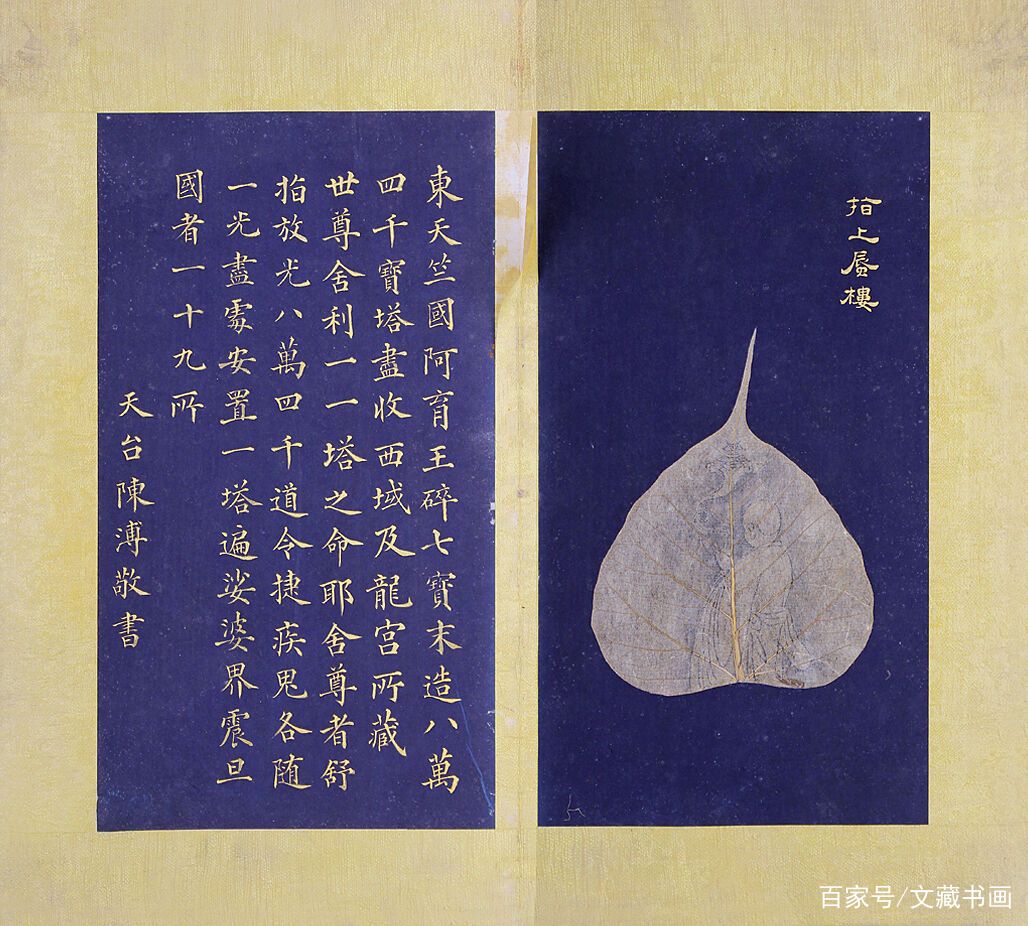 指上蜃樓
東天竺國阿育王碎七寶末造八萬
四千寶塔盡收西域及龍宮所藏
世尊舍利一一塔之命耶舍尊者舒
指放光八萬四千道令捷疾鬼各随
一光盡處安置一塔遍娑婆界震旦
國者一十九所
天台陳溥敬書
百家号/文藏书画